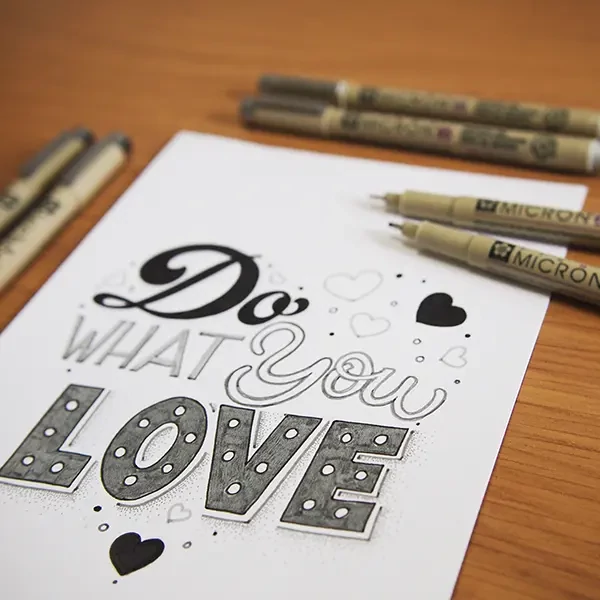 Do
WHAT You
LOVE
MICRON
MICRON